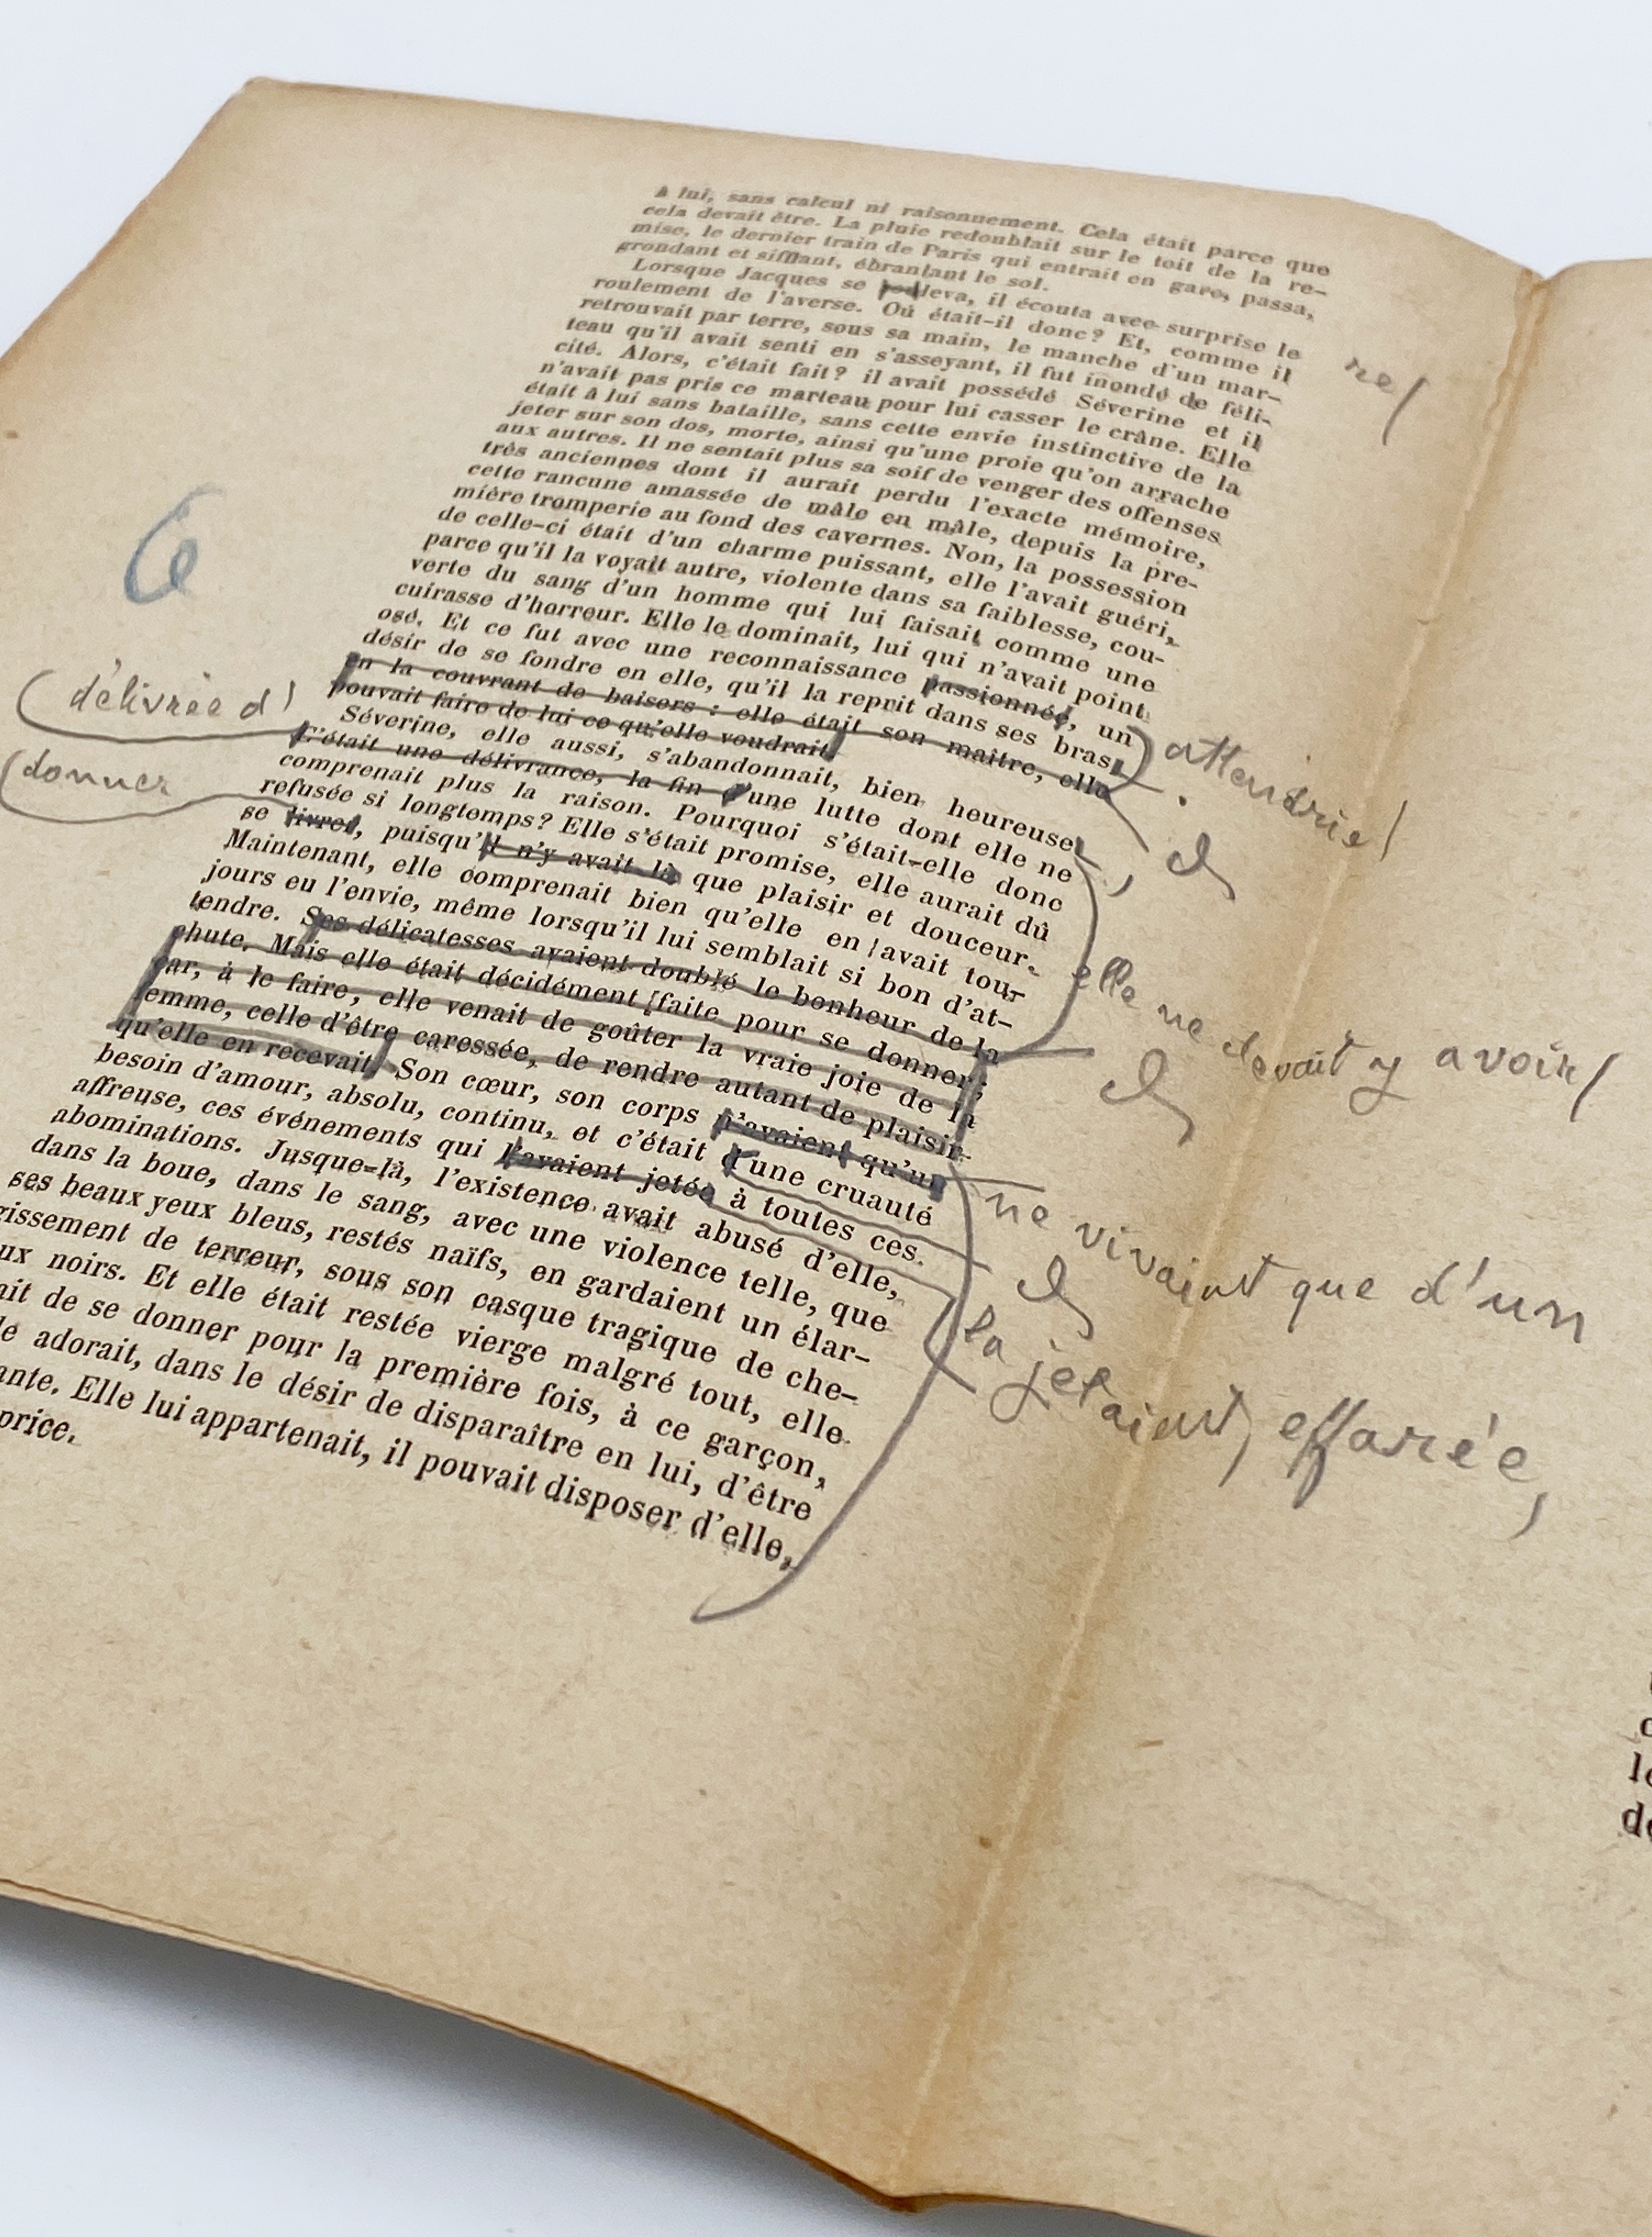 à lui, sans calcul ni raisonnement. Cela était parce que
cela devait être. La pluie redoublait sur le toit de la re-
mise, le dernier train de Paris qui entrait en gare, passa,
grondant et sifflant, ébranlant le sol.
Lorsque Jacques se leva, il écouta avec surprise le
re/
roulement de l'averse. Où était-il donc? Et, comme il
retrouvait par terre, sous sa main, le manche d'un mar-
teau qu'il avait senti en s'asseyant, il fut inondé de féli-
cité. Alors, c'était fait? il avait possédé Séverine et il
n'avait pas pris ce marteau pour lui casser le crâne. Elle
était à lui sans bataille, sans cette envie instinctive de la
jeter sur son dos, morte, ainsi qu'une proie qu'on arrache
aux autres. Il ne sentait plus sa soif de venger des offenses
très anciennes dont il aurait perdu l'exacte mémoire,
cette rancune amassée de mâle en mâle, depuis la pre-
mière tromperie au fond des cavernes. Non, la possession
de celle-ci était d'un charme puissant, elle l'avait guéri,
parce qu'il la voyait autre, violente dans sa faiblesse, cou-
verte du sang d'un homme qui lui faisait comme une
cuirasse d'horreur. Elle le dominait, lui qui n'avait point
osé. Et ce fut avec une reconnaissance passionnée, un
attendrie/
désir de se fondre en elle, qu'il la reprit dans ses bras,
en la couvrant de baisers : elle était son maître, elle
pouvait faire de lui ce qu'elle voudrait
Séverine, elle aussi, s'abandonnait, bien heureuse
délivrée d'
C'était une délivrance, la fin d'une lutte dont elle ne
comprenait plus la raison. Pourquoi s'était-elle donc
refusée si longtemps? Elle s'était promise, elle aurait dû
donner
se livrer, puisqu'il n'y avait là que plaisir et douceur.
elle ne devait y avoir/
Maintenant, elle comprenait bien qu'elle en avait tou-
jours eu l'envie, même lorsqu'il lui semblait si bon d'at-
tendre. Ses délicatesses avaient doublé le bonheur de la
chute. Mais elle était décidément faite pour se donner;
car, à le faire, elle venait de goûter la vraie joie de la
femme, celle d'être caressée, de rendre autant de plaisir
qu'elle en recevait. Son cœur, son corps n'avaient qu'un
ne vivaient que d'un
besoin d'amour, absolu, continu, et c'était d'une cruauté
affreuse, ces événements qui l'avaient jetée à toutes ces
la jetaient, effarée,
abominations. Jusque-là, l'existence avait abusé d'elle,
dans la boue, dans le sang, avec une violence telle, que
ses beaux yeux bleus, restés naïfs, en gardaient un élar-
gissement de terreur, sous son casque tragique de che-
ux noirs. Et elle était restée vierge malgré tout, elle
ait de se donner pour la première fois, à ce garçon,
le adorait, dans le désir de disparaître en lui, d'être
ante. Elle lui appartenait, il pouvait disposer d'elle,
price.
6